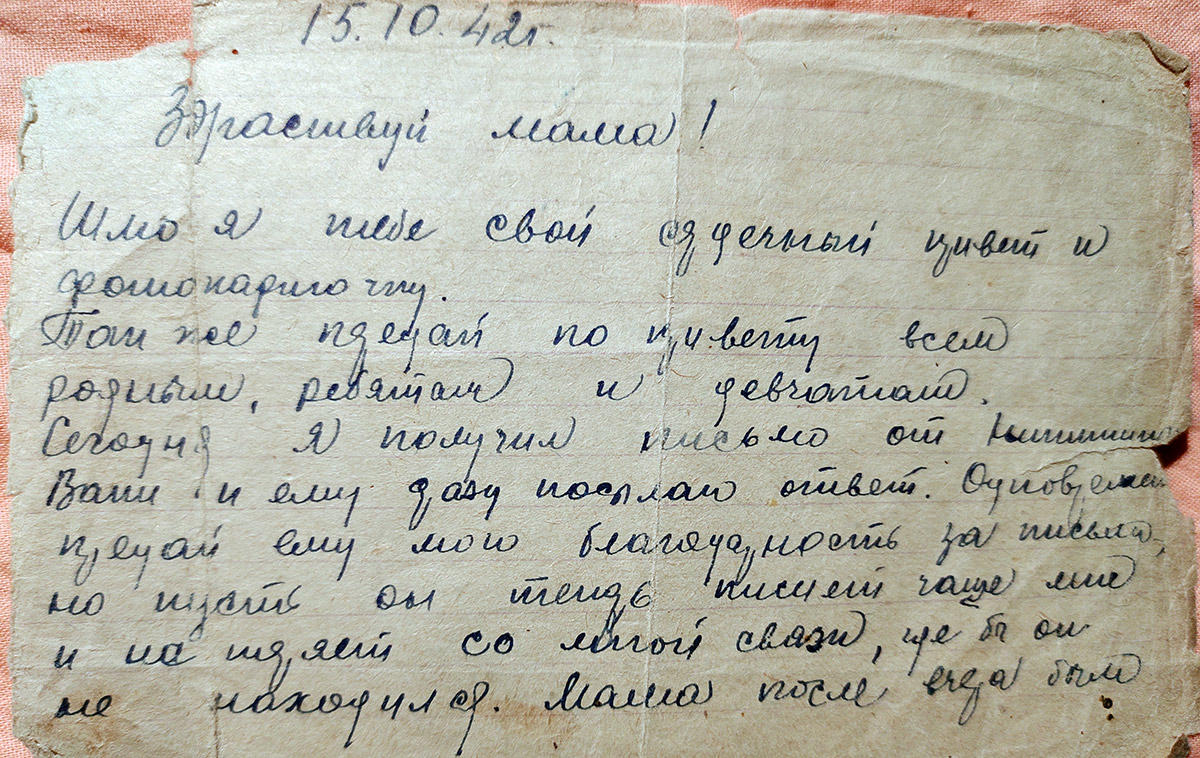 15.10.42г.
Здраствуй мама!
Шлю я тебе свой сердечный привет и
фотокарточку.
Так же предай по привету всем
родным, ребятам и девчатам.
Сегодня я получил письмо от
Вани и ему сразу посылаю ответ.
предай ему мою благодарность за письмо,
но пусть он теперь пишет чаще мне
и не теряет со мной связи, где бы он
не находился. Мама после вчера был